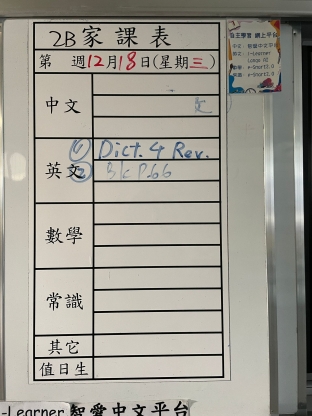 2B家課表
第 週12月18日(星期三)
中文
英文
① Dict. 4 Rev.
② Bk P.66
數學
常識
其它
值日生
自主學習 網上平台
-Learner 智愛中文平台